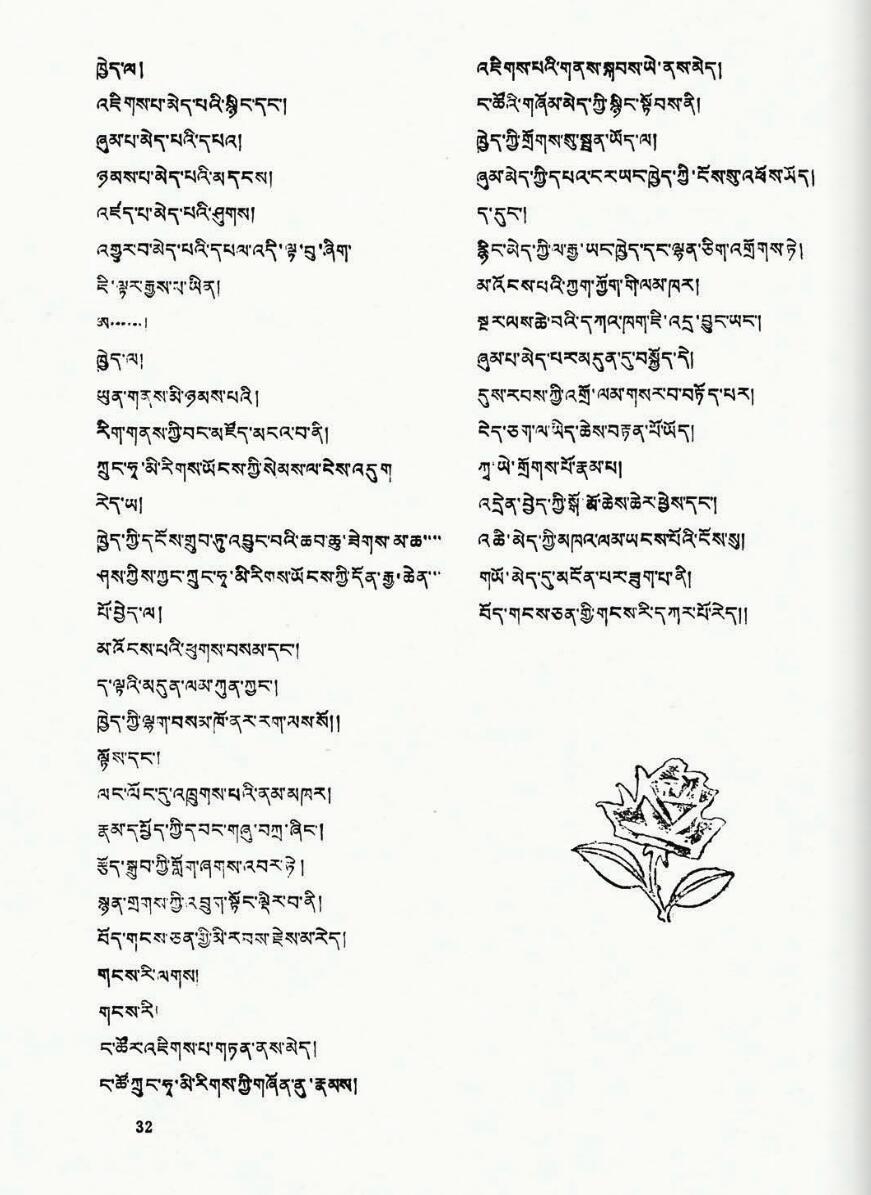 ཁྱེད་ལ།
འཇིགས་པ་མེད་པའི་སྙིང་དང༌།
ཞུམ་པ་མེད་པའི་དཔའ།
ཉམས་པ་མེད་པའི་མདངས།
འཛད་པ་མེད་པའི་ཤུགས།
འགྱུར་བ་མེད་པའི་དཔལ་འདི་ལྟ་བུ་ཞིག་
ཇི་ལྟར་རྒྱས་པ་ཡིན།
ཨ……།
ཁྱེད་ལ།
ཡུན་གནས་མི་ཉམས་པའི།
རིག་གནས་ཀྱི་བང་མཛོད་མངའ་བ་ནི།
ཀྲུང་ཧྭ་མི་རིགས་ཡོངས་ཀྱི་སེམས་ལ་ངེས་འདུག
རེད་ཡ།
ཁྱེད་ཀྱི་དངོས་གྲུབ་ཏུ་འབྱུང་བའི་ཆབ་ཆུ་ཐིགས་མ་ཆ
ཤས་ཀྱིས་ཀྱང་ཀྲུང་ཧྭ་མི་རིགས་ཡོངས་ཀྱི་དོན་རྒྱ་ཆེན་
པོ་བྱེད་ལ།
མ་འོངས་པའི་ཕུགས་བསམ་དང༌།
ད་ལྟའི་མདུན་ལམ་ཀུན་ཀྱང༌།
ཁྱེད་ཀྱི་ལྷག་བསམ་ཁོ་ནར་རག་ལས་སོ།།
ལྟོས་དང༌།
ལང་ལོང་དུ་འཁྲུགས་པའི་ནམ་མཁར།
རྣམ་དཔྱོད་ཀྱི་དབང་གཞུ་བཀྲ་ཞིང༌།
རྩོད་སྒྲུབ་ཀྱི་གློག་ཞགས་འབར་ཏེ།
སྙན་གྲགས་ཀྱི་འབྲུག་སྟོང་ལྡིར་བ་ནི།
བོད་གངས་ཅན་གྱི་མི་རབས་རྗེས་མ་རེད།
གངས་རི་ལགས།
གངས་རི།
ང་ཚོར་འཇིགས་པ་གཏན་ནས་མེད།
ང་ཚོ་ཀྲུང་ཧྭ་མི་རིགས་ཀྱི་གཞོན་ནུ་རྣམས།
འཇིགས་པའི་གནས་སྐབས་ཡེ་ནས་མེད།
ང་ཚོའི་གཞོམ་མེད་ཀྱི་སྙིང་སྟོབས་ནི།
ཁྱེད་ཀྱི་གྲོགས་སུ་སྨན་ཡོད་ལ།
ཞུམ་མེད་ཀྱི་དཔའ་ངར་ཡང་ཁྱེད་ཀྱི་ངོས་སུ་འཕོས་ཡོད།
ད་དུང༌།
རྙིང་མེད་ཀྱི་ལ་རྒྱ་ཡང་ཁྱེད་དང་ལྷན་ཅིག་འགྲོགས་ཏེ།
མ་འོངས་པའི་ཀྱག་ཀྱོག་གི་ལམ་ཁར།
སྔར་ལས་ཆེ་བའི་དཀའ་ཁག་ཇི་འདྲ་བྱུང་ཡང༌།
ཞུམ་པ་མེད་པར་མདུན་དུ་བསྐྱོད་དེ།
དུས་རབས་ཀྱི་འགྲོ་ལམ་གསར་བ་བཏོད་པར།
ངེད་ཅག་ལ་ཡིད་ཆེས་བརྟན་པོ་ཡོད།
ཀྭ་ཡེ་གྲོགས་པོ་རྣམ་པ།
འདྲེན་བྱེད་ཀྱི་སྒོ་མོ་ཆེས་ཆེར་ཕྱེས་དང༌།
འཆི་མེད་ཀྱི་མཁའ་ལམ་ཡངས་པོའི་ངོས་སུ།
གཡོ་མེད་དུ་མངོན་པར་ཟུག་པ་ནི།
བོད་གངས་ཅན་གྱི་གངས་རི་དཀར་པོ་རེད།།
32